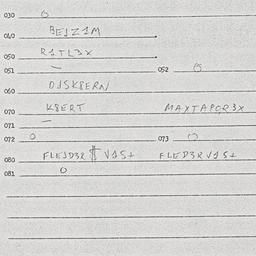 030 O
040 BEJZ1M
050 R1TL3X
051 — 052 O
060 DJSK8ERN
070 K8ERT MAYTAPQR3X
071 —
072 O 073 O
080 FLEJD3R V1S+ FLED3RV1S+
081 O